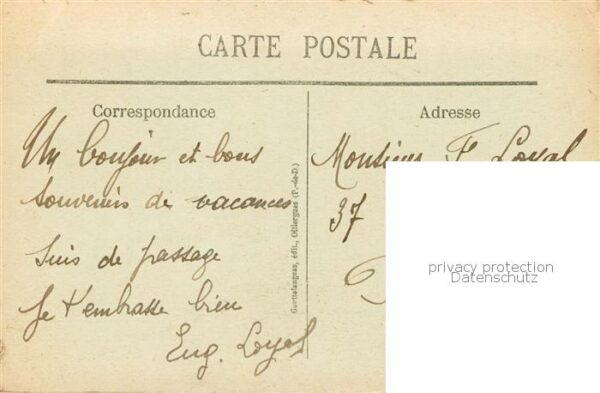 CARTE POSTALE
Correspondance
Adresse
Un bonjour et bons
souvenirs de vacances
suis de passage
Je t'embrasse bien
Eug. Loyal
Monsieur F. Loyal
37
privacy protection
Datenschutz
édit., Olliergues (P.-de-D.)